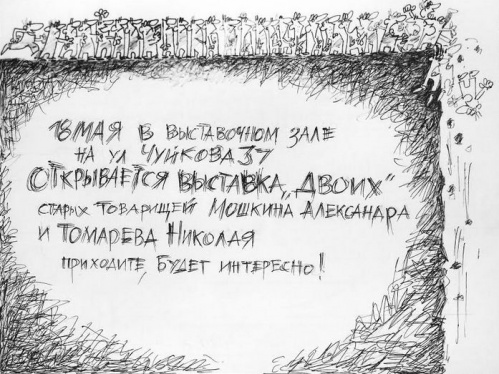 18 МАЯ В ВЫСТАВОЧНОМ ЗАЛЕ
НА УЛ ЧУЙКОВА 37
ОТКРЫВАЕТСЯ ВЫСТАВКА „ДВОИХ"
СТАРЫХ ТОВАРИЩЕЙ МОШКИНА АЛЕКСАНДРА
И ТОМАРЕВА НИКОЛАЯ
ПРИХОДИТЕ, БУДЕТ ИНТЕРЕСНО!